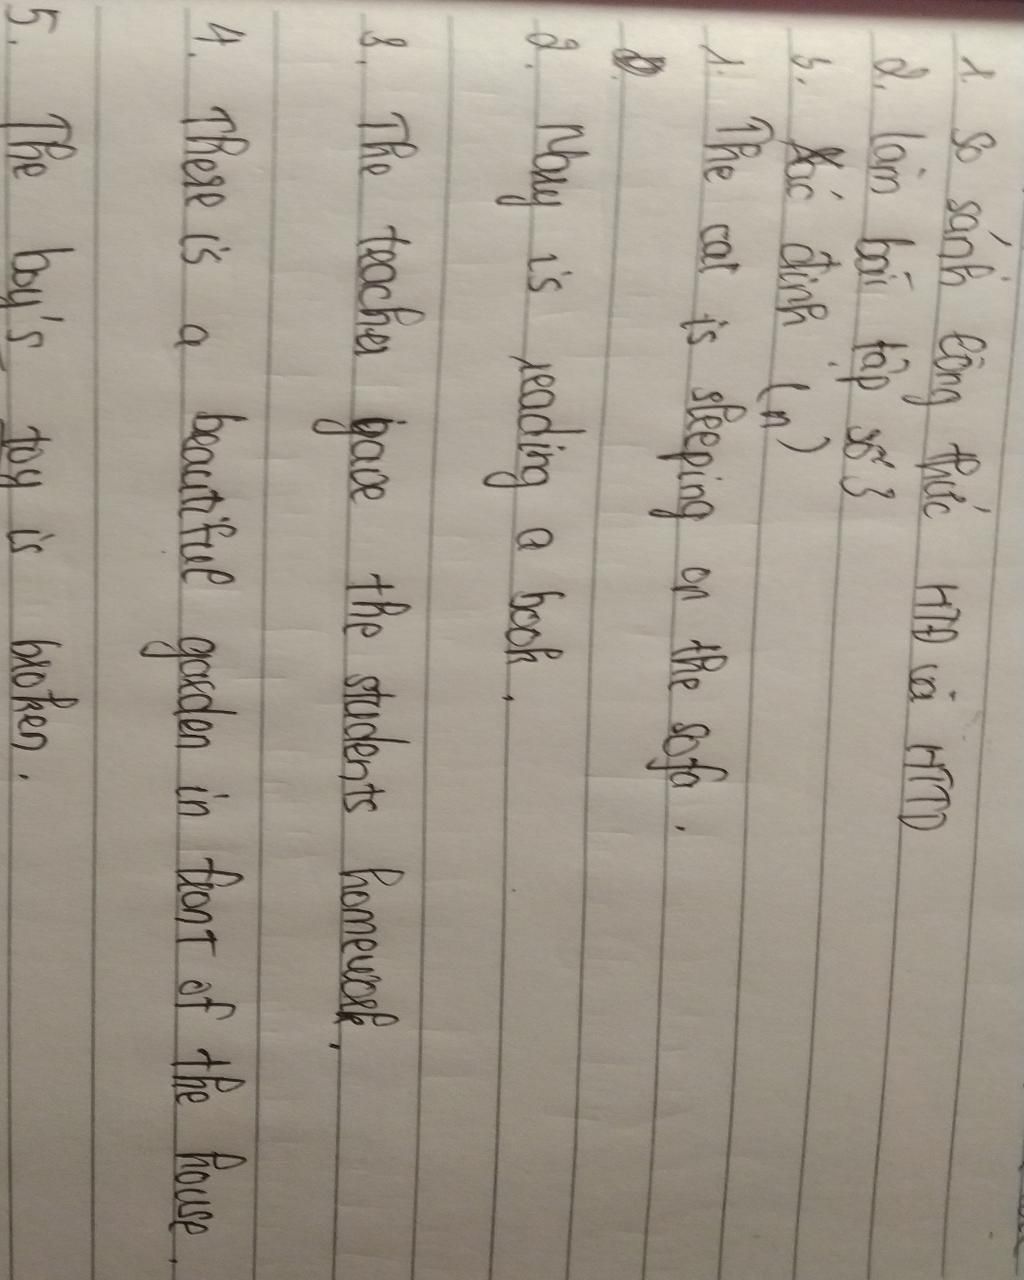 1. so sánh công thức HTĐ và HTTD
2. làm bài tập số 3
3. Xác định (n)
1. The cat is sleeping on the sofa.
2. Mary is reading a book.
3. The teacher gave the students homework.
4. There is a beautiful garden in front of the house.
5. The boy's toy is broken.